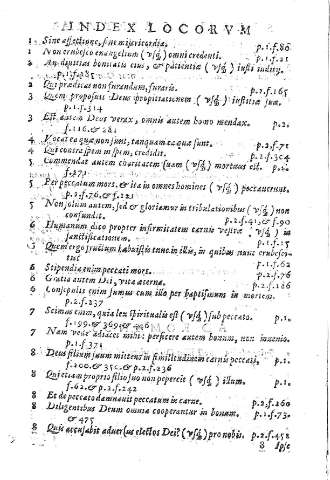 INDEX LOCORVM
1 Sine affectione, sine misericordia. p.1.f.86
1 Non erubesco euangelium (vsq;) omni credenti. p.1.f.21
2 An diuitias bonitatis eius, & patientiæ (vsq;) iusti iudicij.
p.1.f.285
2 Qui prædicas non furandum, furaris. p.2.f.165
3 Quem proposuit Deus propitiationem (vsq;) iustitiæ suæ.
p.1.f.314
3 Est autem Deus verax, omnis autem homo mendax. p.2.
f.116.& 281
4 Vocat ea quæ non sunt, tanquam ea quæ sunt. p.2.f.71
4 Qui contra spem in spem, credidit. p.2.f.304
5 Commendat autem charitatem suam (vsq;) mortuus est. p.2.
f.271
5 Per peccatum mors. & ita in omnes homines (vsq;) peccauerunt.
p.1.f.76.& f.121
5 Non solum autem, sed & gloriamur in tribulationibus (vsq;) non
confundit. p.2.f.41,& f.90
6 Humanum dico propter infirmitatem carnis vestræ (vsq;) in
sanctificationem. p.1.f.15
6 Quem ergo fructum habuistis tunc in illis, in quibus nunc erubesci-
tis? p.1.f.62
6 Stipendia enim peccati mors. p.2.f.76
6 Gratia autem Dei, vita æterna. p.2.f.186
6 Consepulti enim sumus cum illo per baptismum in mortem.
p.2.f.237
7 Scimus enim, quia lex spiritualis est (vsq;) sub peccato. p.1.
f.199.& 369.& 446
7 Nam velle adiacet mihi: perficere autem bonum, non inuenio.
p.1.f.371
8 Deus filium suum mittens in similitudinem carnis peccati, p.1.
f.200.& 350.& p.2.f.236
8 Qui etiam proprio filio suo non pepercit (vsq;) illum. p.1.
f.62.& p.2.f.242
8 Et de peccato damnauit peccatum in carne. p.2.f.160
8 Diligentibus Deum omnia cooperantur in bonum. p.1.f.73.
& 475
8 Quis accusabit aduersus electos Dei? (vsq;) pro nobis. p.2.f.458
8 Ipse